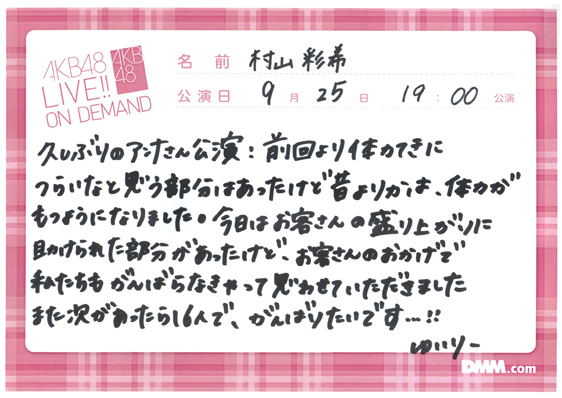 AKB48
LIVE!!
ON DEMAND
AKB
48
名 前 村山彩希
公演日 9月25日 19:00 公演
久しぶりのアンナさん公演！前回より体力てきに
つらいなと思う部分はあったけど昔よりかは、体力が
もつようになりました。今日はお客さんの盛り上がりに
助けられた部分があったけど、お客さんのおかげで
私たちもがんばらなきゃって思わせていただきました
また次があったら16人で、がんばりたいです…!!
ゆいりー
DMM.com